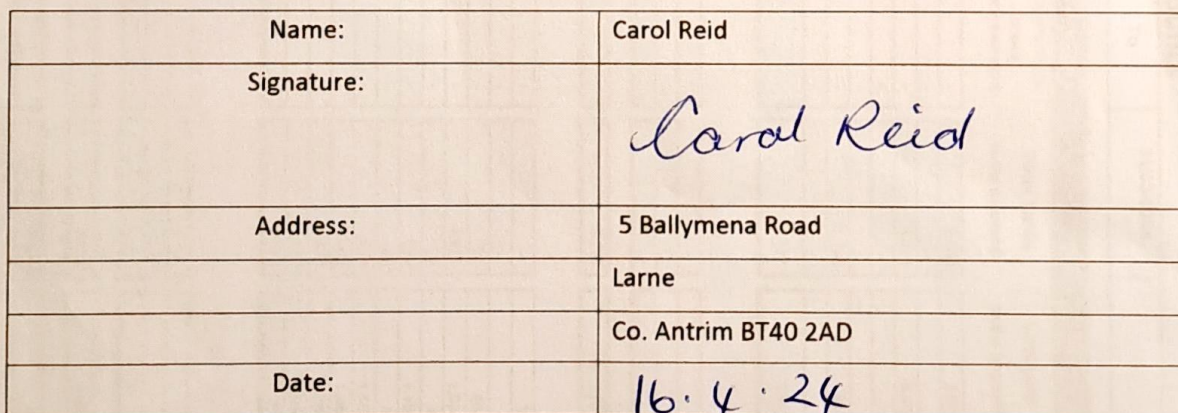 Name: Carol Reid
Signature: Carol Reid
Address: 5 Ballymena Road
Larne
Co. Antrim BT40 2AD
Date: 16.4.24